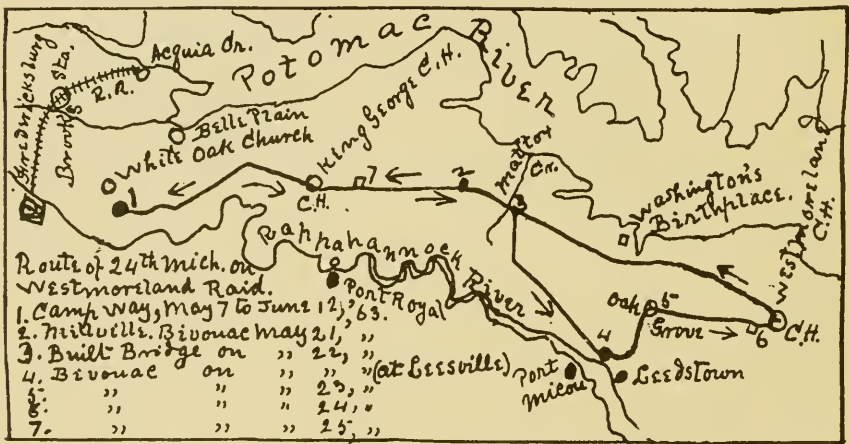 Potomac River
Acquia Cr.
Fredericksburg
Brooks Sta.
R.R.
Belle Plain
White Oak Church
King George C.H.
C.H.
1
7
2
Mattox
Cr.
3
Washington's
Birthplace.
Westmoreland
C.H.
C.H.
Rappahannock River
Port Royal
Oak
Grove
5
6
4
Port
Micou
Leedstown
Route of 24th Mich. on
Westmoreland Raid.
1. Camp Way, May 7 to June 12, '63.
2. Millville. Bivouac May 21, "
3. Built Bridge on " 22, "
4. Bivouac on " " " (at Leesville)
5. " " " 23, "
6. " " " 24, "
7. " " " 25, "